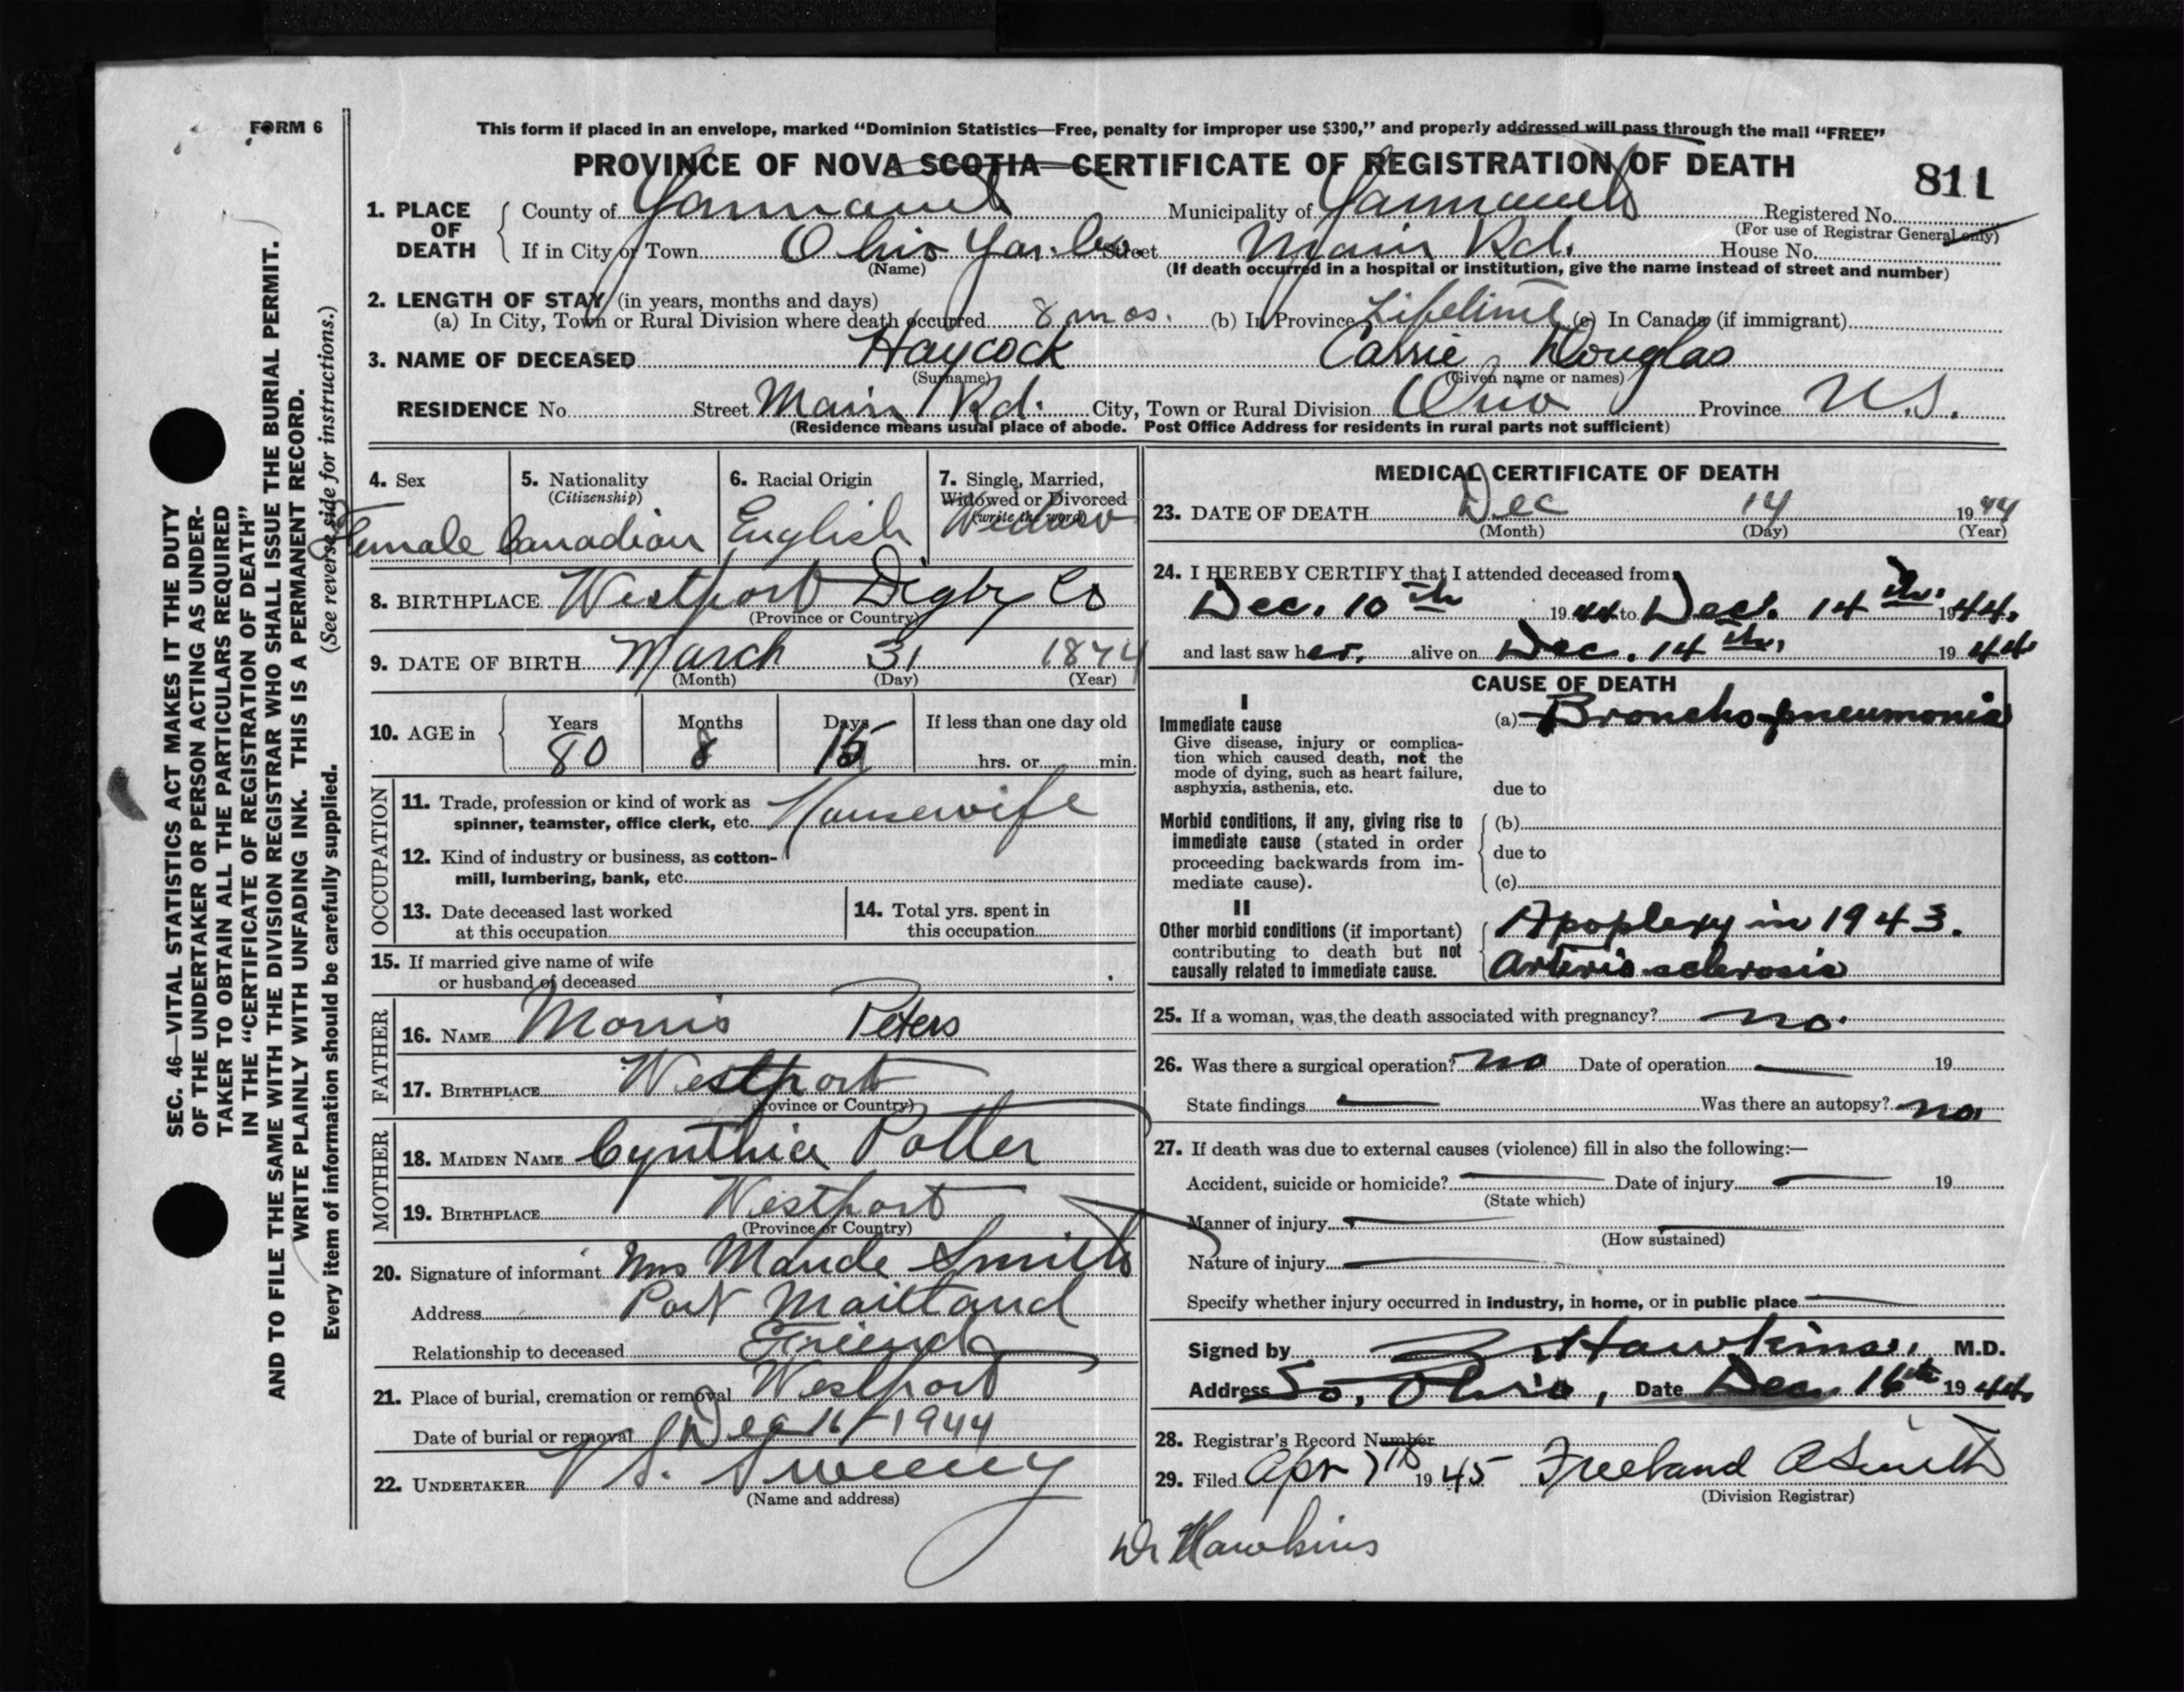 FORM 6
This form if placed in an envelope, marked "Dominion Statistics—Free, penalty for improper use $300," and properly addressed will pass through the mail "FREE"
PROVINCE OF NOVA SCOTIA—CERTIFICATE OF REGISTRATION OF DEATH
811
1. PLACE OF DEATH County of Yarmouth Municipality of Yarmouth Registered No.
(For use of Registrar General only)
If in City or Town Ohio Yar. Co Street Main Rd. House No.
(Name) (If death occurred in a hospital or institution, give the name instead of street and number)
2. LENGTH OF STAY (in years, months and days)
(a) In City, Town or Rural Division where death occurred 8 mos. (b) In Province Lifetime (c) In Canada (if immigrant)
3. NAME OF DECEASED Haycock Cassie Douglas
(Surname) (Given name or names)
RESIDENCE No. Street Main Rd. City, Town or Rural Division Ohio Province N.S.
(Residence means usual place of abode. Post Office Address for residents in rural parts not sufficient)
SEC. 46—VITAL STATISTICS ACT MAKES IT THE DUTY
OF THE UNDERTAKER OR PERSON ACTING AS UNDER-
TAKER TO OBTAIN ALL THE PARTICULARS REQUIRED
IN THE "CERTIFICATE OF REGISTRATION OF DEATH"
AND TO FILE THE SAME WITH THE DIVISION REGISTRAR WHO SHALL ISSUE THE BURIAL PERMIT.
WRITE PLAINLY WITH UNFADING INK. THIS IS A PERMANENT RECORD.
Every item of information should be carefully supplied. (See reverse side for instructions.)
4. Sex 5. Nationality (Citizenship) 6. Racial Origin 7. Single, Married, Widowed or Divorced (write the word)
Female Canadian English Widow
8. BIRTHPLACE Westport Digby Co
(Province or Country)
9. DATE OF BIRTH March 31 1874
(Month) (Day) (Year)
10. AGE in Years Months Days If less than one day old
80 8 15 hrs. or min.
OCCUPATION
11. Trade, profession or kind of work as
spinner, teamster, office clerk, etc. Housewife
12. Kind of industry or business, as cotton-
mill, lumbering, bank, etc.
13. Date deceased last worked
at this occupation
14. Total yrs. spent in
this occupation
15. If married give name of wife
or husband of deceased
FATHER
16. NAME Morris Peters
17. BIRTHPLACE Westport
(Province or Country)
MOTHER
18. MAIDEN NAME Cynthia Potter
19. BIRTHPLACE Westport
(Province or Country)
20. Signature of informant Mrs Maude Smith
Address Port Maitland
Relationship to deceased Friend
21. Place of burial, cremation or removal Westport
Date of burial or removal Dec 16 1944
22. UNDERTAKER V S. Sweeny
(Name and address)
MEDICAL CERTIFICATE OF DEATH
23. DATE OF DEATH Dec 14 1944
(Month) (Day) (Year)
24. I HEREBY CERTIFY that I attended deceased from
Dec. 10th 1944 to Dec. 14th. 1944.
and last saw her, alive on Dec. 14th, 1944
CAUSE OF DEATH
I
Immediate cause (a) Broncho-pneumonia
Give disease, injury or complica-
tion which caused death, not the
mode of dying, such as heart failure,
asphyxia, asthenia, etc. due to
Morbid conditions, if any, giving rise to (b)
immediate cause (stated in order
proceeding backwards from im- due to
mediate cause). (c)
II
Other morbid conditions (if important) Apoplexy in 1943.
contributing to death but not
causally related to immediate cause. Arterio sclerosis
25. If a woman, was the death associated with pregnancy? no.
26. Was there a surgical operation? no Date of operation 19
State findings Was there an autopsy? no
27. If death was due to external causes (violence) fill in also the following:—
Accident, suicide or homicide? Date of injury 19
(State which)
Manner of injury
(How sustained)
Nature of injury
Specify whether injury occurred in industry, in home, or in public place
Signed by Hawkins, M.D.
Address So. Ohio, Date Dec. 16th 1944
28. Registrar's Record Number
29. Filed Apr 7th 1945 Freeland A Smith
(Division Registrar)
Dr Hawkins